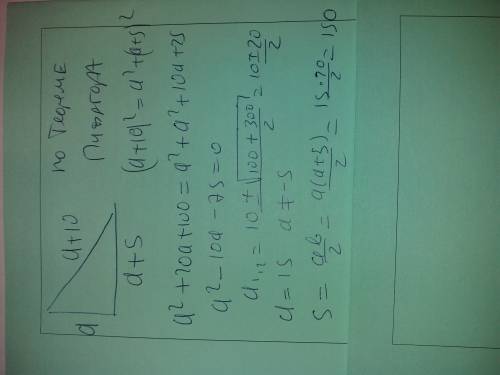 a
a+10
a+5
по Теореме
Пифагора
(a+10)² = a² + (a+5)²
a² + 20a + 100 = a² + a² + 10a + 25
a² - 10a - 75 = 0
a₁,₂ = (10 ± √(100 + 300))/2 = (10 ± 20)/2
a = 15 a ≠ -5
S = ab/2 = a(a+5)/2 = 15·20/2 = 150